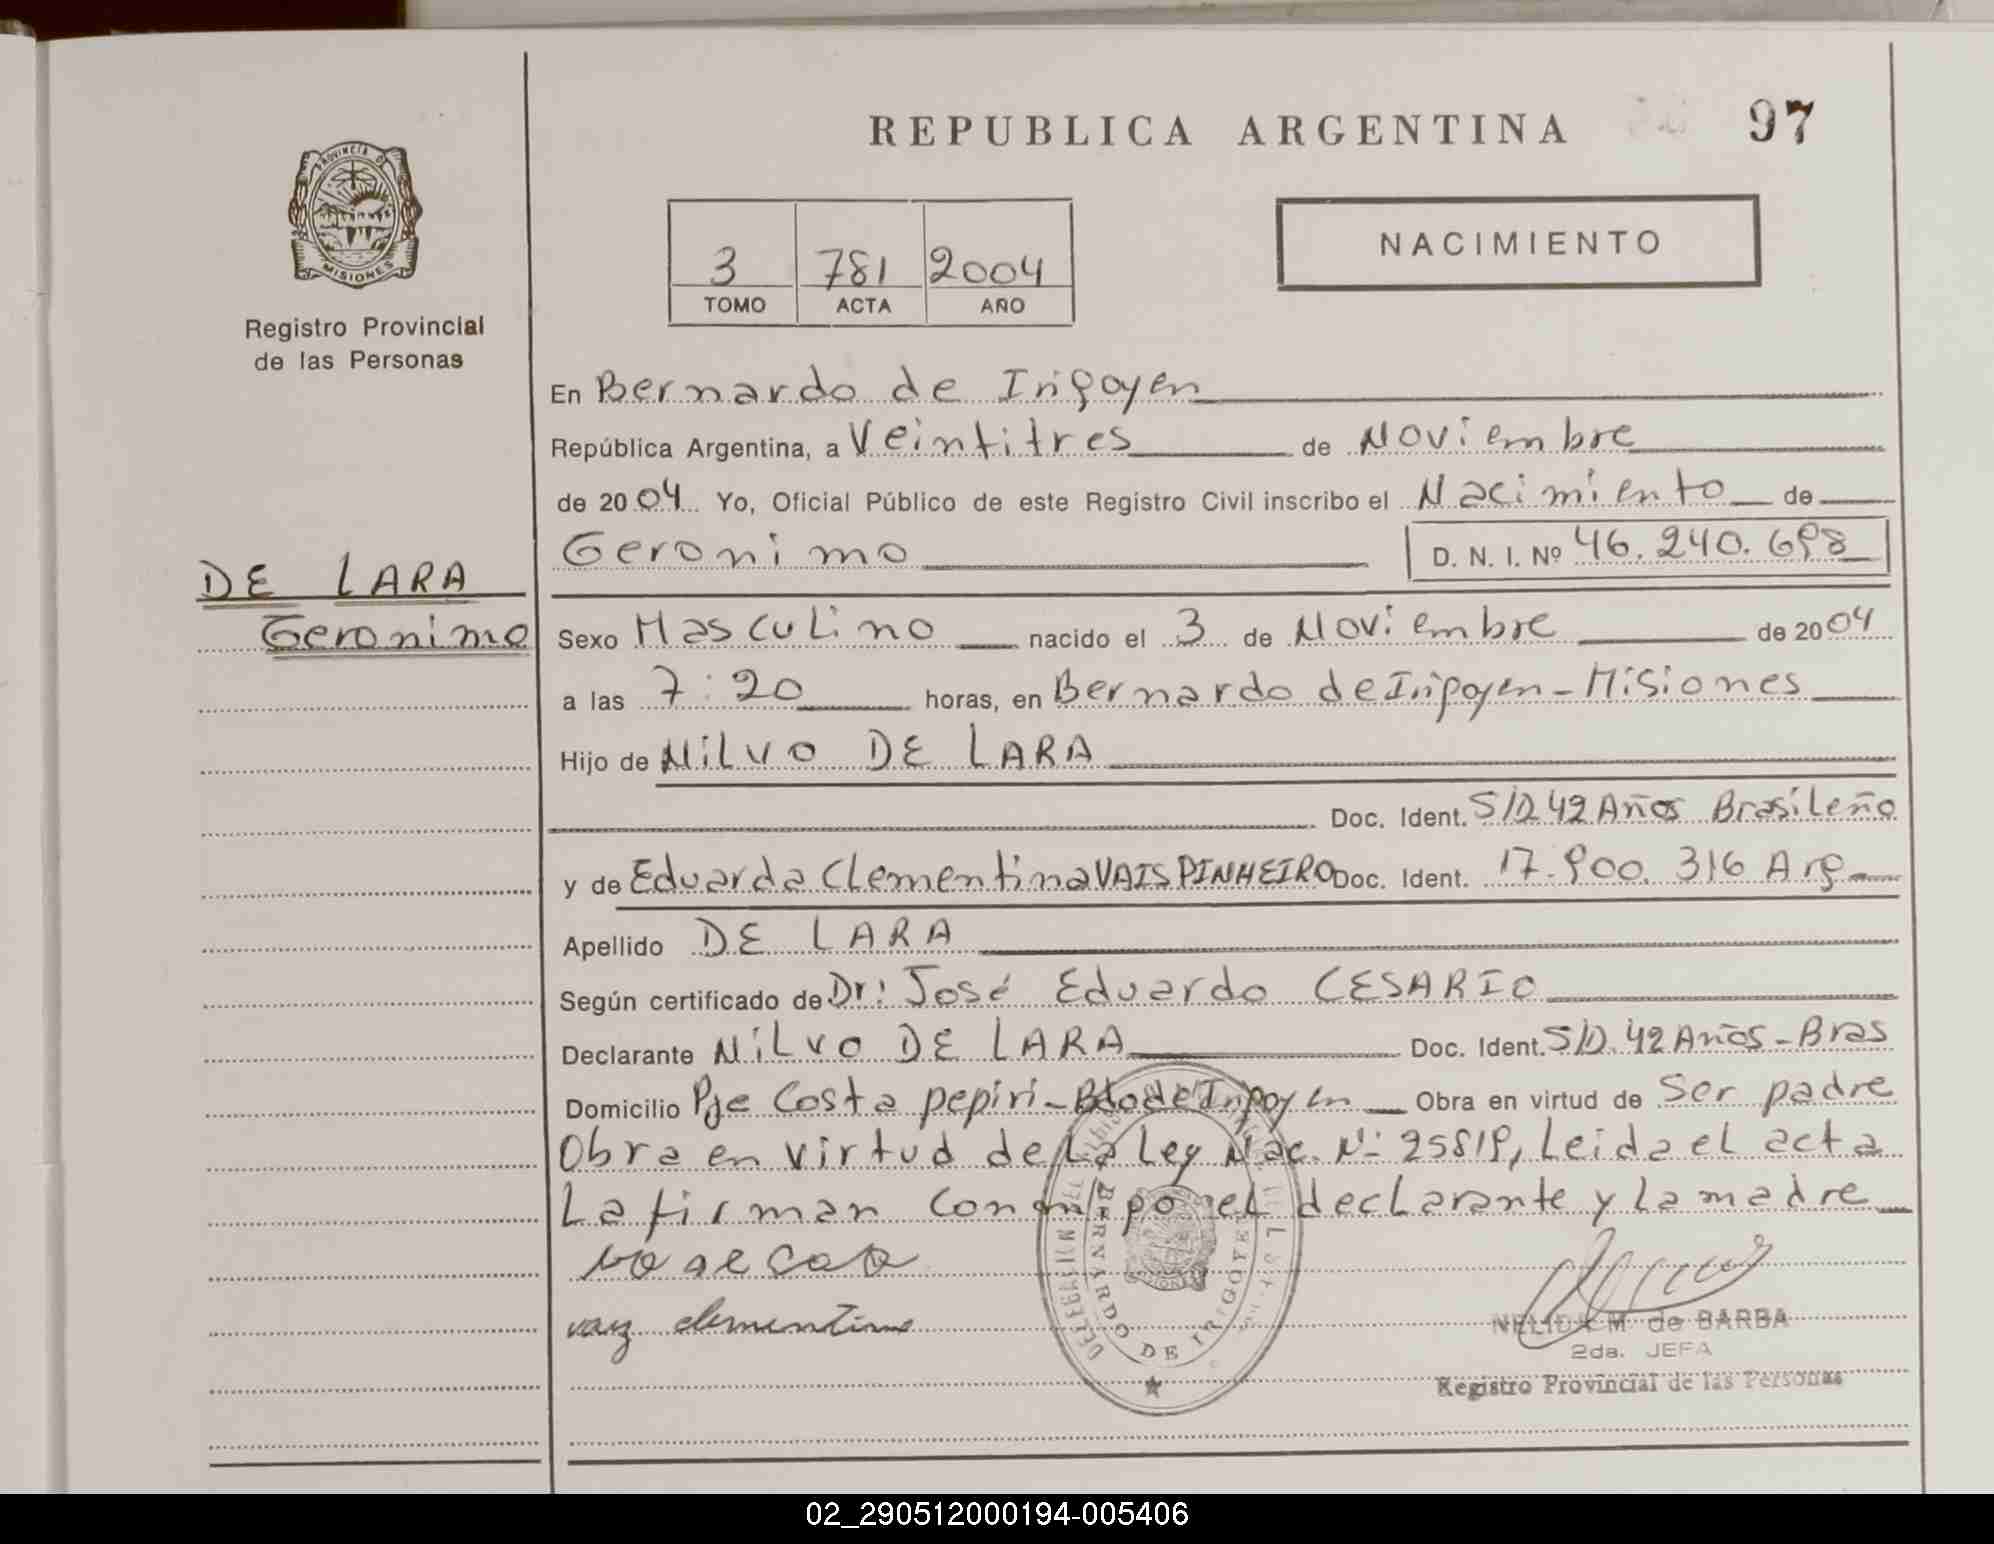 REPUBLICA ARGENTINA
97
PROVINCIA DE
MISIONES
Registro Provincial
de las Personas
3 781 2004
TOMO ACTA AÑO
NACIMIENTO
En Bernardo de Irigoyen
República Argentina, a Veintitres de Noviembre
de 2004 Yo, Oficial Público de este Registro Civil inscribo el Nacimiento de
Geronimo D. N. I. Nº 46.240.698
DE LARA
Geronimo
Sexo Masculino nacido el 3 de Noviembre de 2004
a las 7:20 horas, en Bernardo de Irigoyen - Misiones
Hijo de Nilvo DE LARA
Doc. Ident. S/D 42 Años Brasileño
y de Eduarda Clementina VAIS PINHEIRO Doc. Ident. 17.900.316 Arg
Apellido DE LARA
Según certificado de Dr: José Eduardo CESARIO
Declarante Nilvo DE LARA Doc. Ident. S/D. 42 Años - Bras
Domicilio Pje Costa pepiri - Bdo de Irigoyen Obra en virtud de Ser padre
Obra en virtud de La Ley Nac. Nº 25819, Leida el acta
La firman conmigo el declarante y La madre
vaiz clementina
BERNARDO DE IRIGOYEN
NELIDA M de BARBA
2da. JEFA
Registro Provincial de las Personas
02_290512000194-005406